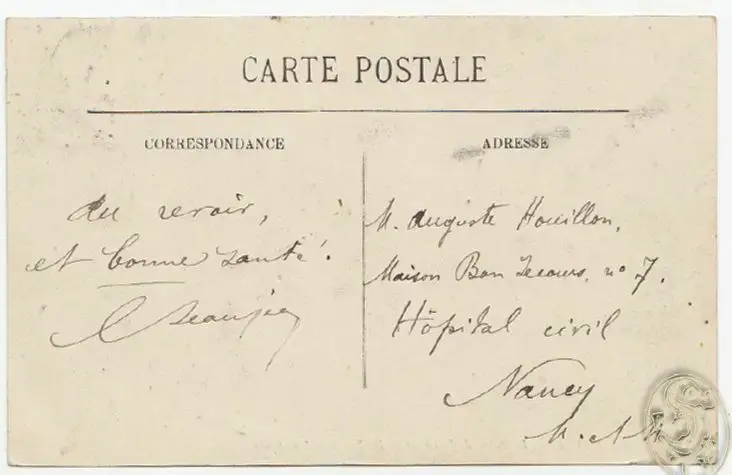 CARTE POSTALE
CORRESPONDANCE
au revoir,
et bonne santé!
ADRESSE
M. Auguste Houillon,
Maison Bon Secours, nº 7.
Hôpital civil
Nancy
M.-et-M.